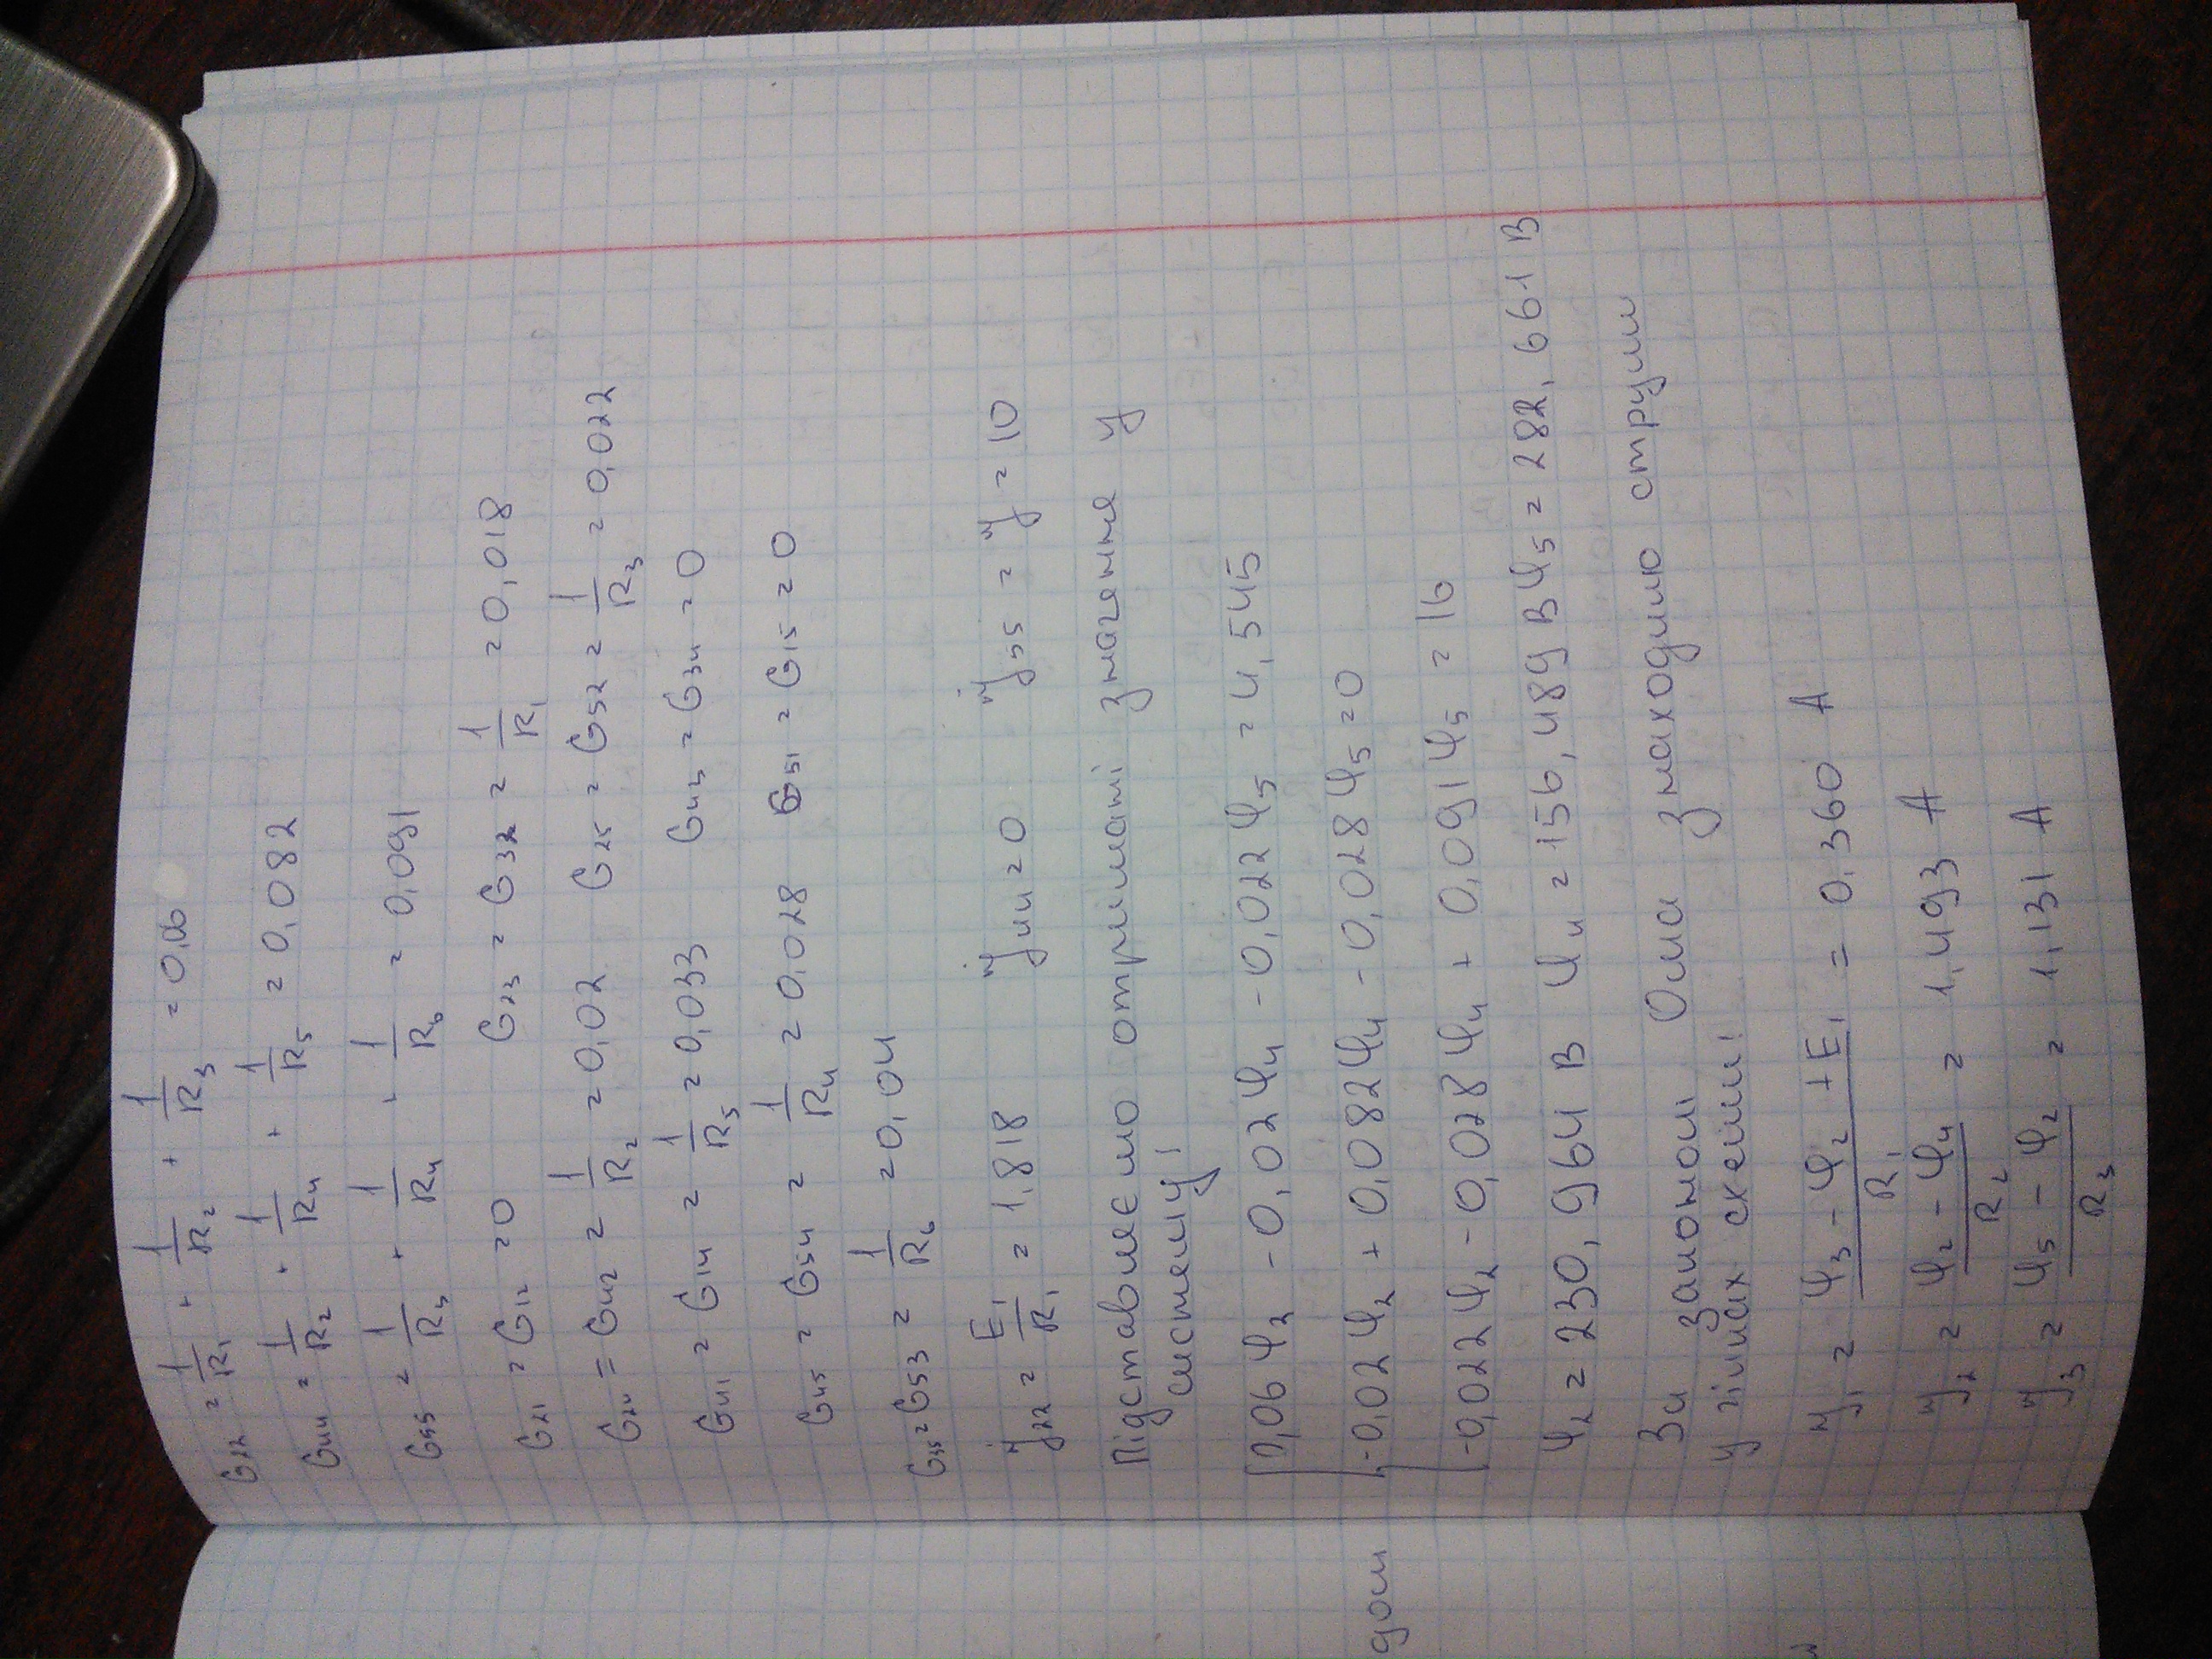 G22 = 1/R1 + 1/R2 + 1/R3 = 0,06
G44 = 1/R2 + 1/R4 + 1/R5 = 0,082
G55 = 1/R3 + 1/R4 + 1/R6 = 0,091
G21 = G12 = 0 G23 = G32 = 1/R1 = 0,018
G24 = G42 = 1/R2 = 0,02 G25 = G52 = 1/R3 = 0,022
G41 = G14 = 1/R5 = 0,033 G43 = G34 = 0
G45 = G54 = 1/R4 = 0,028 G51 = G15 = 0
G35 = G53 = 1/R6 = 0,04
J22 = E1/R1 = 1,818 J44 = 0 J55 = J = 10
Підставляємо отримані значення у
систему:
0,06φ2 - 0,02φ4 - 0,022φ5 = 4,545
-0,02φ2 + 0,082φ4 - 0,028φ5 = 0
-0,022φ2 - 0,028φ4 + 0,091φ5 = 16
φ2 = 230,964 В φ4 = 156,489 В φ5 = 282,661 В
За законом Ома знаходимо струми
у гілках схеми:
J1 = (φ3 - φ2 + E1)/R1 = 0,360 А
J2 = (φ2 - φ4)/R2 = 1,493 А
J3 = (φ5 - φ2)/R3 = 1,131 А
дом